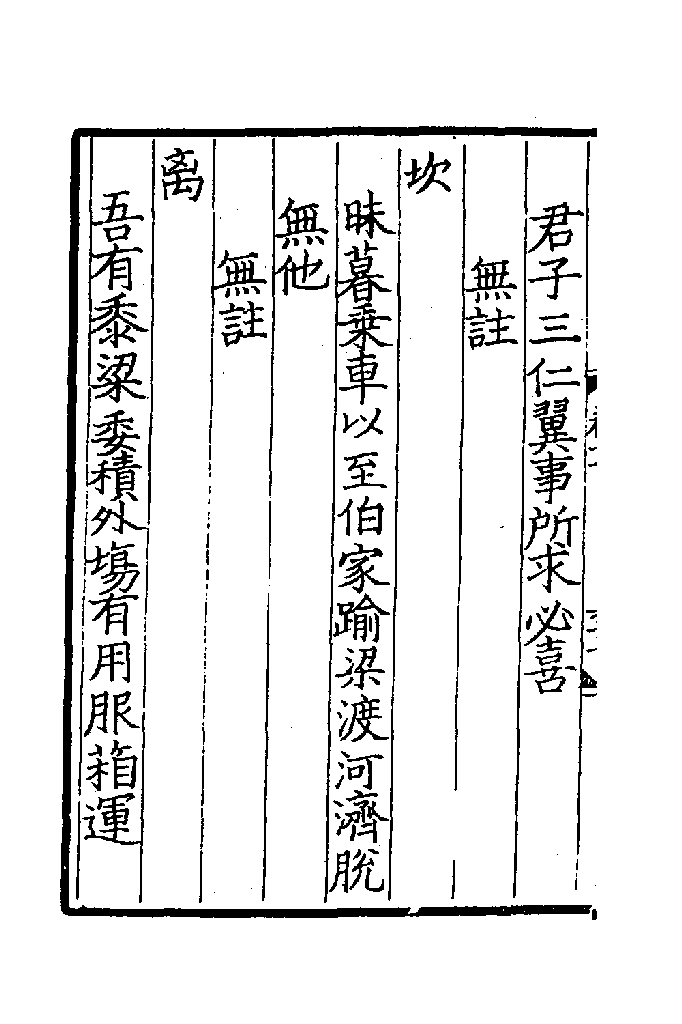 君子三仁翼事所求必喜
無註
坎
昧暮乗車以至伯家踰梁渡河濟脫
無他
無註
离
吾有黍粱委積外塲有用服葙運